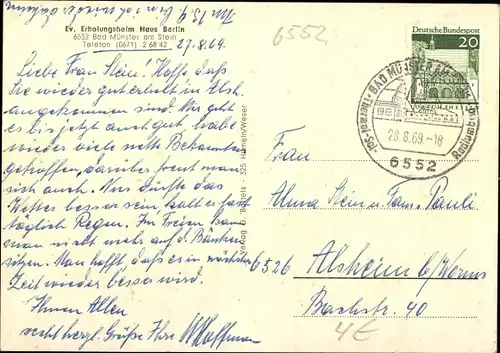 Ev. Erholungsheim Haus Berlin
6552 Bad Münster am Stein
Telefon (0671) 2 68 42
27.8.69.
Liebe Frau Stein! Hoffe daß
Sie wieder gut erholt in Alsh.
angekommen sind. Mir geht
es bis jetzt auch gut, habe
wieder viele nette Bekannte
getroffen, darüber freut man
sich auch. Nur dürfte das
Wetter besser sein, bald es fast
täglich Regen. Im Freien kann
man nicht mehr auf d. Bänken
sitzen. Man hofft daß es in nächster
Zeit wieder besser wird.
Ihnen Allen
recht herzl. Grüße Ihre W. Hoffmann
Verlag G. Bartels · 325 Hameln/Weser
6552
Deutsche Bundespost
20
BAD MÜNSTER AM STEIN
28.8.69-18
6552
Frau
Alma Stein u. Fam. Pauli
6526 Alsheim b/Worms
Bachstr. 40
4€